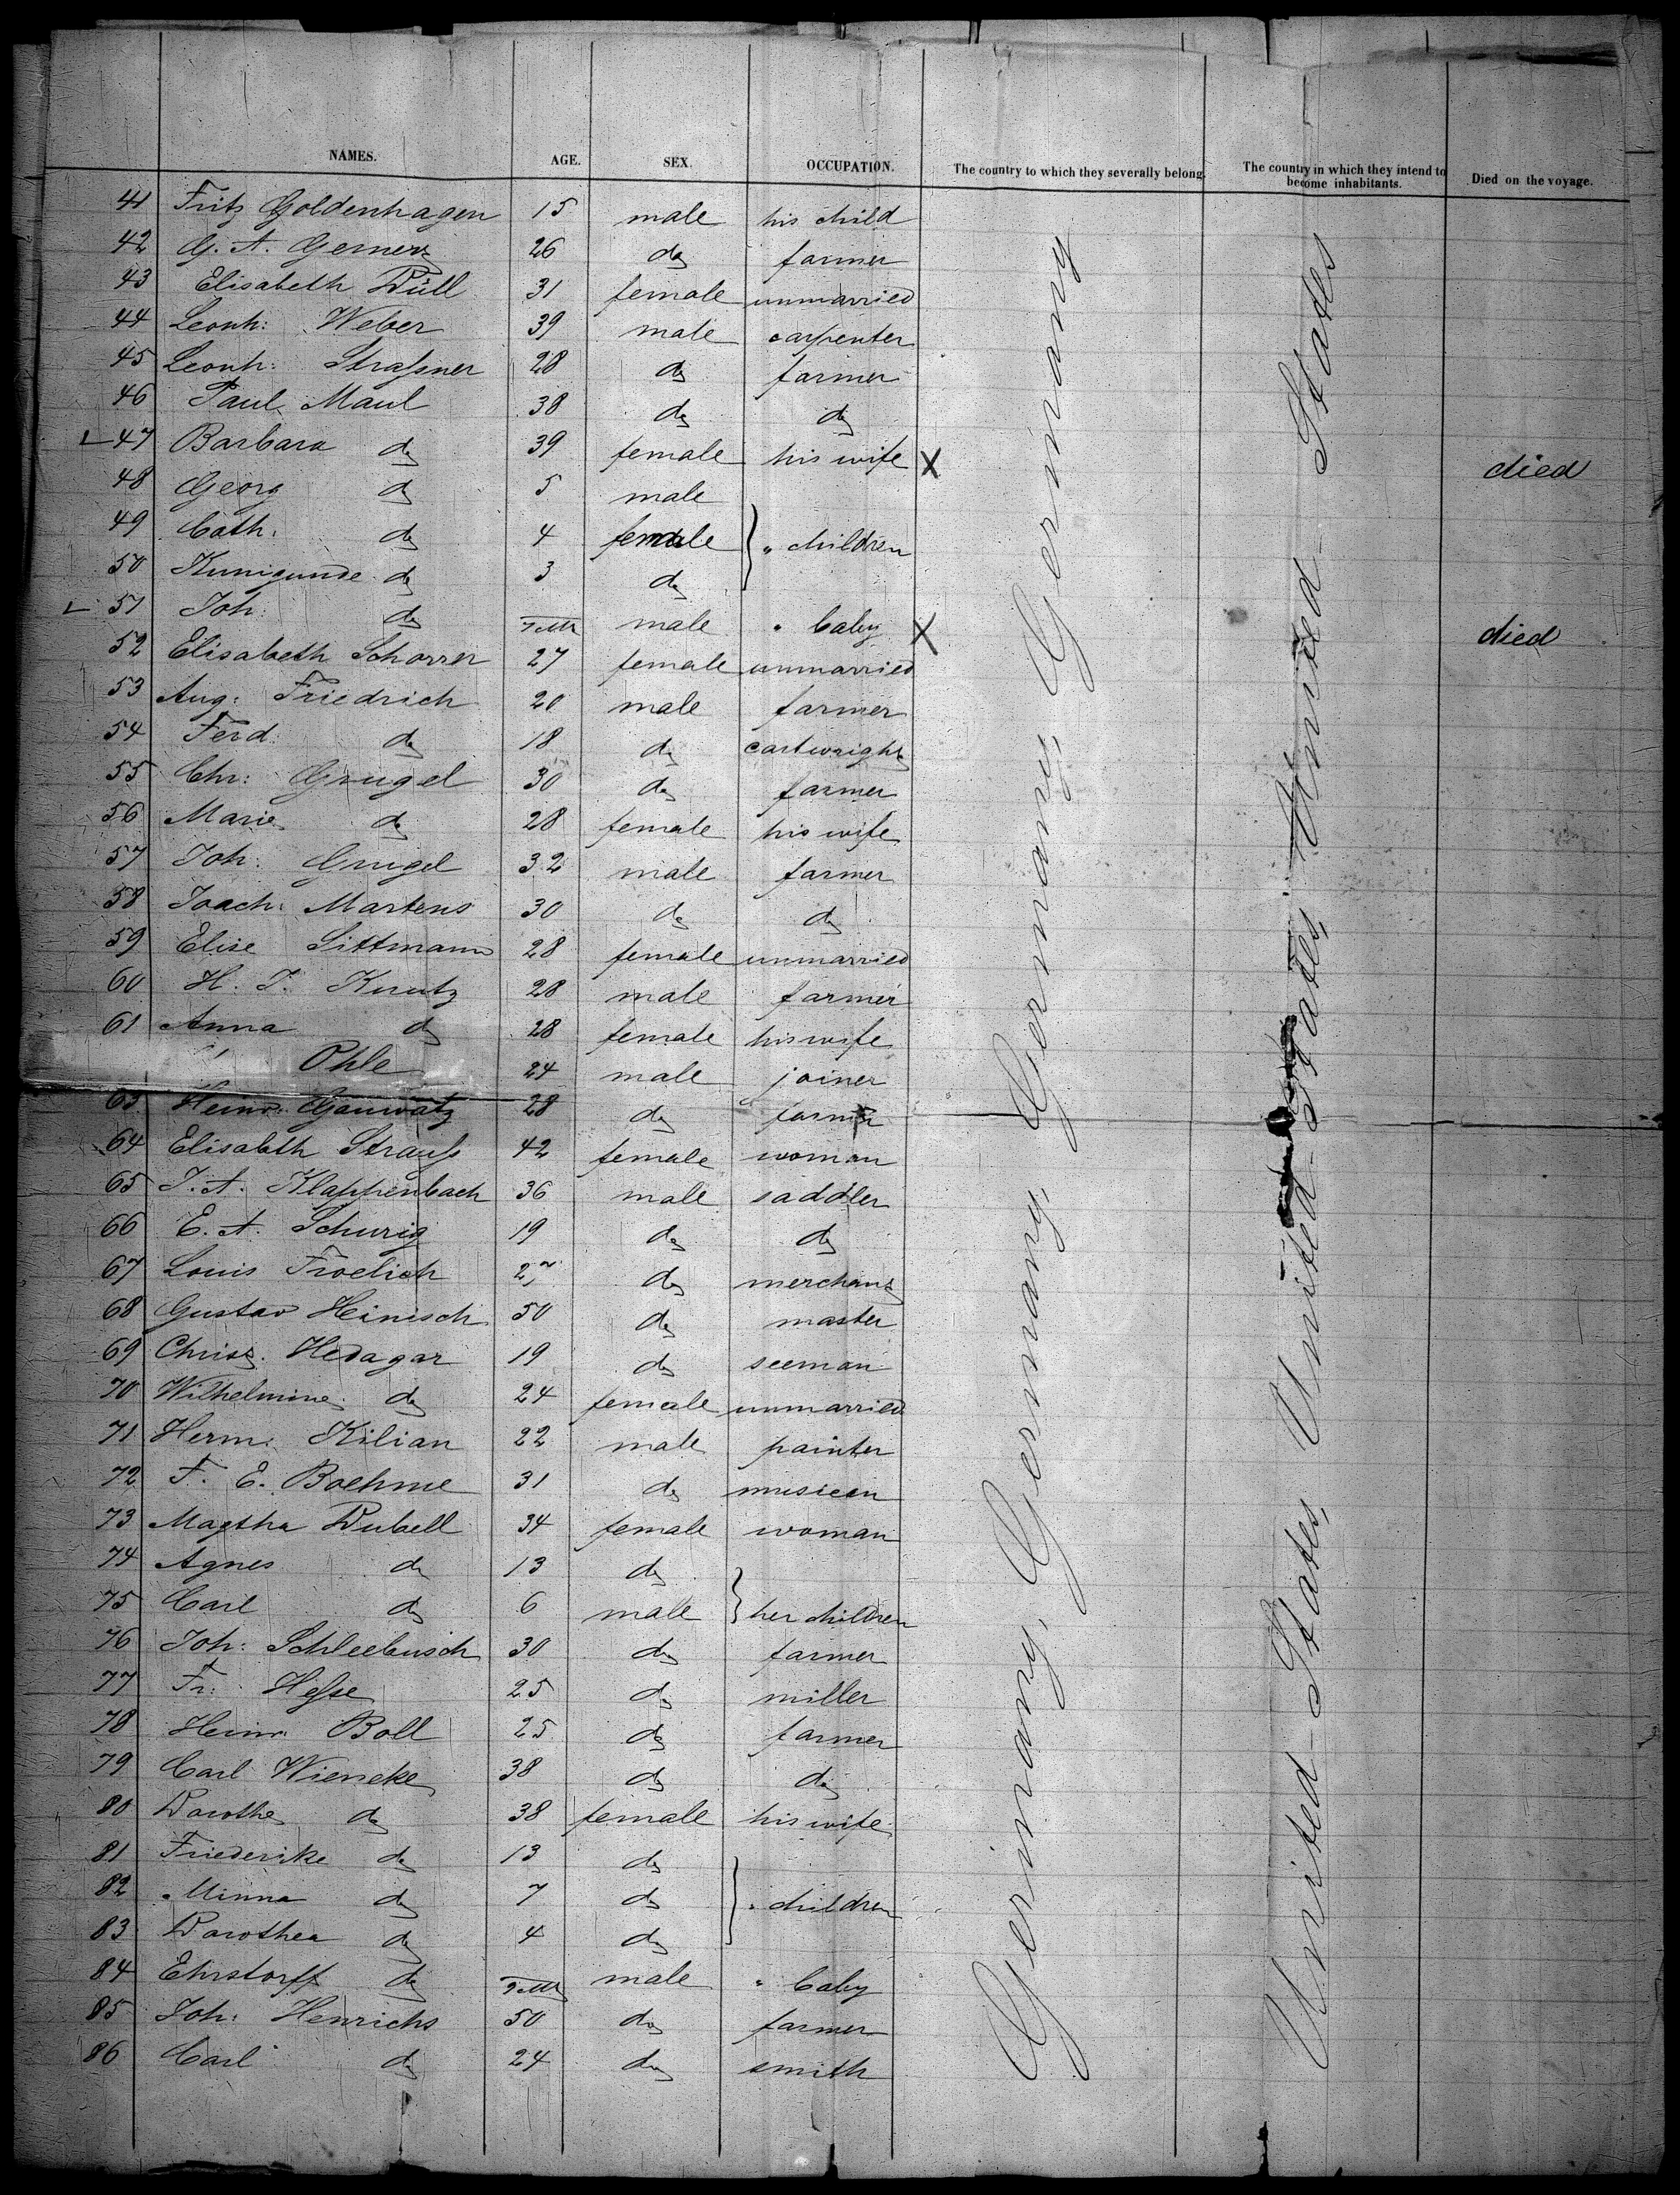 NAMES. AGE. SEX. OCCUPATION. The country to which they severally belong. The country in which they intend to become inhabitants. Died on the voyage.
41 Fritz Goldenhagen 15 male his child
42 G. A. Gernerz 26 do farmer
43 Elisabeth Düll 31 female unmarried
44 Leonh: Weber 39 male carpenter
45 Leonh: Straßner 28 do farmer
46 Paul Maul 38 do do
47 Barbara do 39 female his wife X died
48 Georg do 5 male
49 Cath. do 4 female } " children
50 Kunigunde do 3 do
51 Joh: do male " baby X died
52 Elisabeth Schorrer 27 female unmarried
53 Aug: Friedrich 20 male farmer
54 Ferd: do 18 do cartwright
55 Chr: Grugel 30 do farmer
56 Marie do 28 female his wife
57 Joh: Grugel 32 male farmer
58 Joach: Martens 30 do do
59 Elise Sittmann 28 female unmarried
60 H. J. Kuntz 28 male farmer
61 Anna do 28 female his wife
Ohle 24 male joiner
63 Heinr. 28 do farmer
64 Elisabeth Strauß 42 female woman
65 J. A. Klappenbach 36 male saddler
66 E. A. Schurig 19 do do
67 Louis Froelich do merchant
68 Gustav Heinisch 50 do master
69 Christ. Hedagar 19 do seeman
70 Wilhelmine do 24 female unmarried
71 Herm: Kilian 22 male painter
72 F. E. Boehme 31 do musicen
73 Magtha Dubell 34 female woman
74 Agnes do 13 do
75 Carl do 6 male } her children
76 Joh: Schleebusch 30 do farmer
77 Fr: Heße 25 do miller
78 Heinr. Boll 25 do farmer
79 Carl Wiencke 38 do do
80 Dorothe do 38 female his wife
81 Friederike do 13 do
82 Minna do 7 do } " children
83 Dorothea do 4 do
84 Ehrstorff do male " baby
85 Joh: Henrichs 50 do farmer
86 Carl do 24 do smith
Germany, Germany, Germany, Germany, Germany
United-States, United-States, United-States